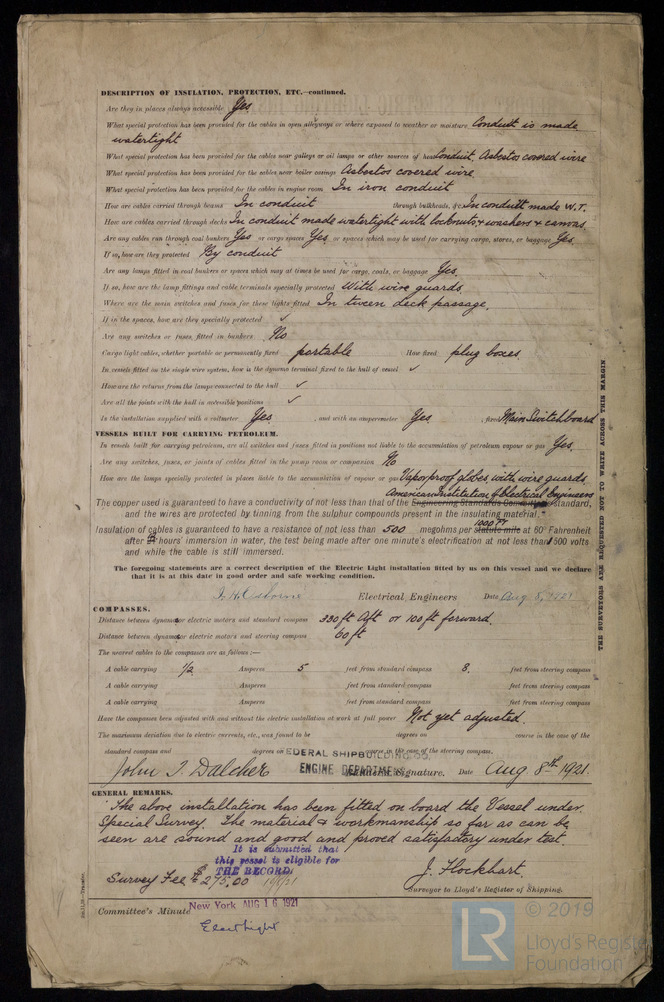 DESCRIPTION OF INSULATION, PROTECTION, ETC.—continued.
Are they in places always accessible Yes
What special protection has been provided for the cables in open alleyways or where exposed to weather or moisture Conduit is made
watertight
What special protection has been provided for the cables near galleys or oil lamps or other sources of heat Conduit, Asbestos covered wire
What special protection has been provided for the cables near boiler casings Asbestos covered wire
What special protection has been provided for the cables in engine room In iron conduit
How are cables carried through beams In conduit through bulkheads, &c. In conduit made W.T.
How are cables carried through decks In conduit made watertight with locknuts & washers & canvas.
Are any cables run through coal bunkers Yes or cargo spaces Yes or spaces which may be used for carrying cargo, stores, or baggage Yes.
If so, how are they protected By conduit
Are any lamps fitted in coal bunkers or spaces which may at times be used for cargo, coals, or baggage Yes.
If so, how are the lamp fittings and cable terminals specially protected With wire guards
Where are the main switches and fuses for these lights fitted In tween deck passage.
If in the spaces, how are they specially protected ✓
Are any switches or fuses fitted in bunkers No
Cargo light cables, whether portable or permanently fixed portable How fixed plug boxes.
In vessels fitted on the single wire system, how is the dynamo terminal fixed to the hull of vessel ✓
How are the returns from the lamps connected to the hull ✓
Are all the joints with the hull in accessible positions ✓
Is the installation supplied with a voltmeter Yes , and with an amperemeter Yes , fixed Main Switchboard
VESSELS BUILT FOR CARRYING PETROLEUM.
In vessels built for carrying petroleum, are all switches and fuses fitted in positions not liable to the accumulation of petroleum vapour or gas Yes.
Are any switches, fuses, or joints of cables fitted in the pump room or companion No
How are the lamps specially protected in places liable to the accumulation of vapour or gas Vaporproof globes, with wire guards
American Institution of Electrical Engineers
The copper used is guaranteed to have a conductivity of not less than that of the Engineering Standards Committee's standard,
and the wires are protected by tinning from the sulphur compounds present in the insulating material.
1000 FT
Insulation of cables is guaranteed to have a resistance of not less than 500 megohms per statute mile at 60° Fahrenheit
after hours' immersion in water, the test being made after one minute's electrification at not less than 1500 volts
and while the cable is still immersed.
The foregoing statements are a correct description of the Electric Light installation fitted by us on this vessel and we declare
that it is at this date in good order and safe working condition.
Electrical Engineers Date Aug 8, 1921
COMPASSES.
Distance between dynamo or electric motors and standard compass 330 ft Aft or 100 ft forward.
Distance between dynamo or electric motors and steering compass 60 ft
The nearest cables to the compasses are as follows:—
A cable carrying 1/2 Amperes 5 feet from standard compass 8. feet from steering compass
A cable carrying Amperes feet from standard compass feet from steering compass
A cable carrying Amperes feet from standard compass feet from steering compass
Have the compasses been adjusted with and without the electric installation at work at full power Not yet adjusted.
The maximum deviation due to electric currents, etc., was found to be degrees on course in the case of the
standard compass and degrees on course in the case of the steering compass.
FEDERAL SHIPBUILDING CO.
ENGINE DEPARTMENT
John T. Dalcher Signature. Date Aug 8th 1921.
GENERAL REMARKS.
The above installation has been fitted on board the Vessel under
Special Survey. The material & workmanship so far as can be
seen are sound and good and proved satisfactory under test.
It is submitted that
this vessel is eligible for
THE RECORD.
Survey Fee $275.00 J. Flockhart.
Surveyor to Lloyd's Register of Shipping.
Committee's Minute New York AUG 16 1921
Elect Light
THE SURVEYORS ARE REQUESTED NOT TO WRITE ACROSS THIS MARGIN
LR © 2019
Lloyd's Register
Foundation